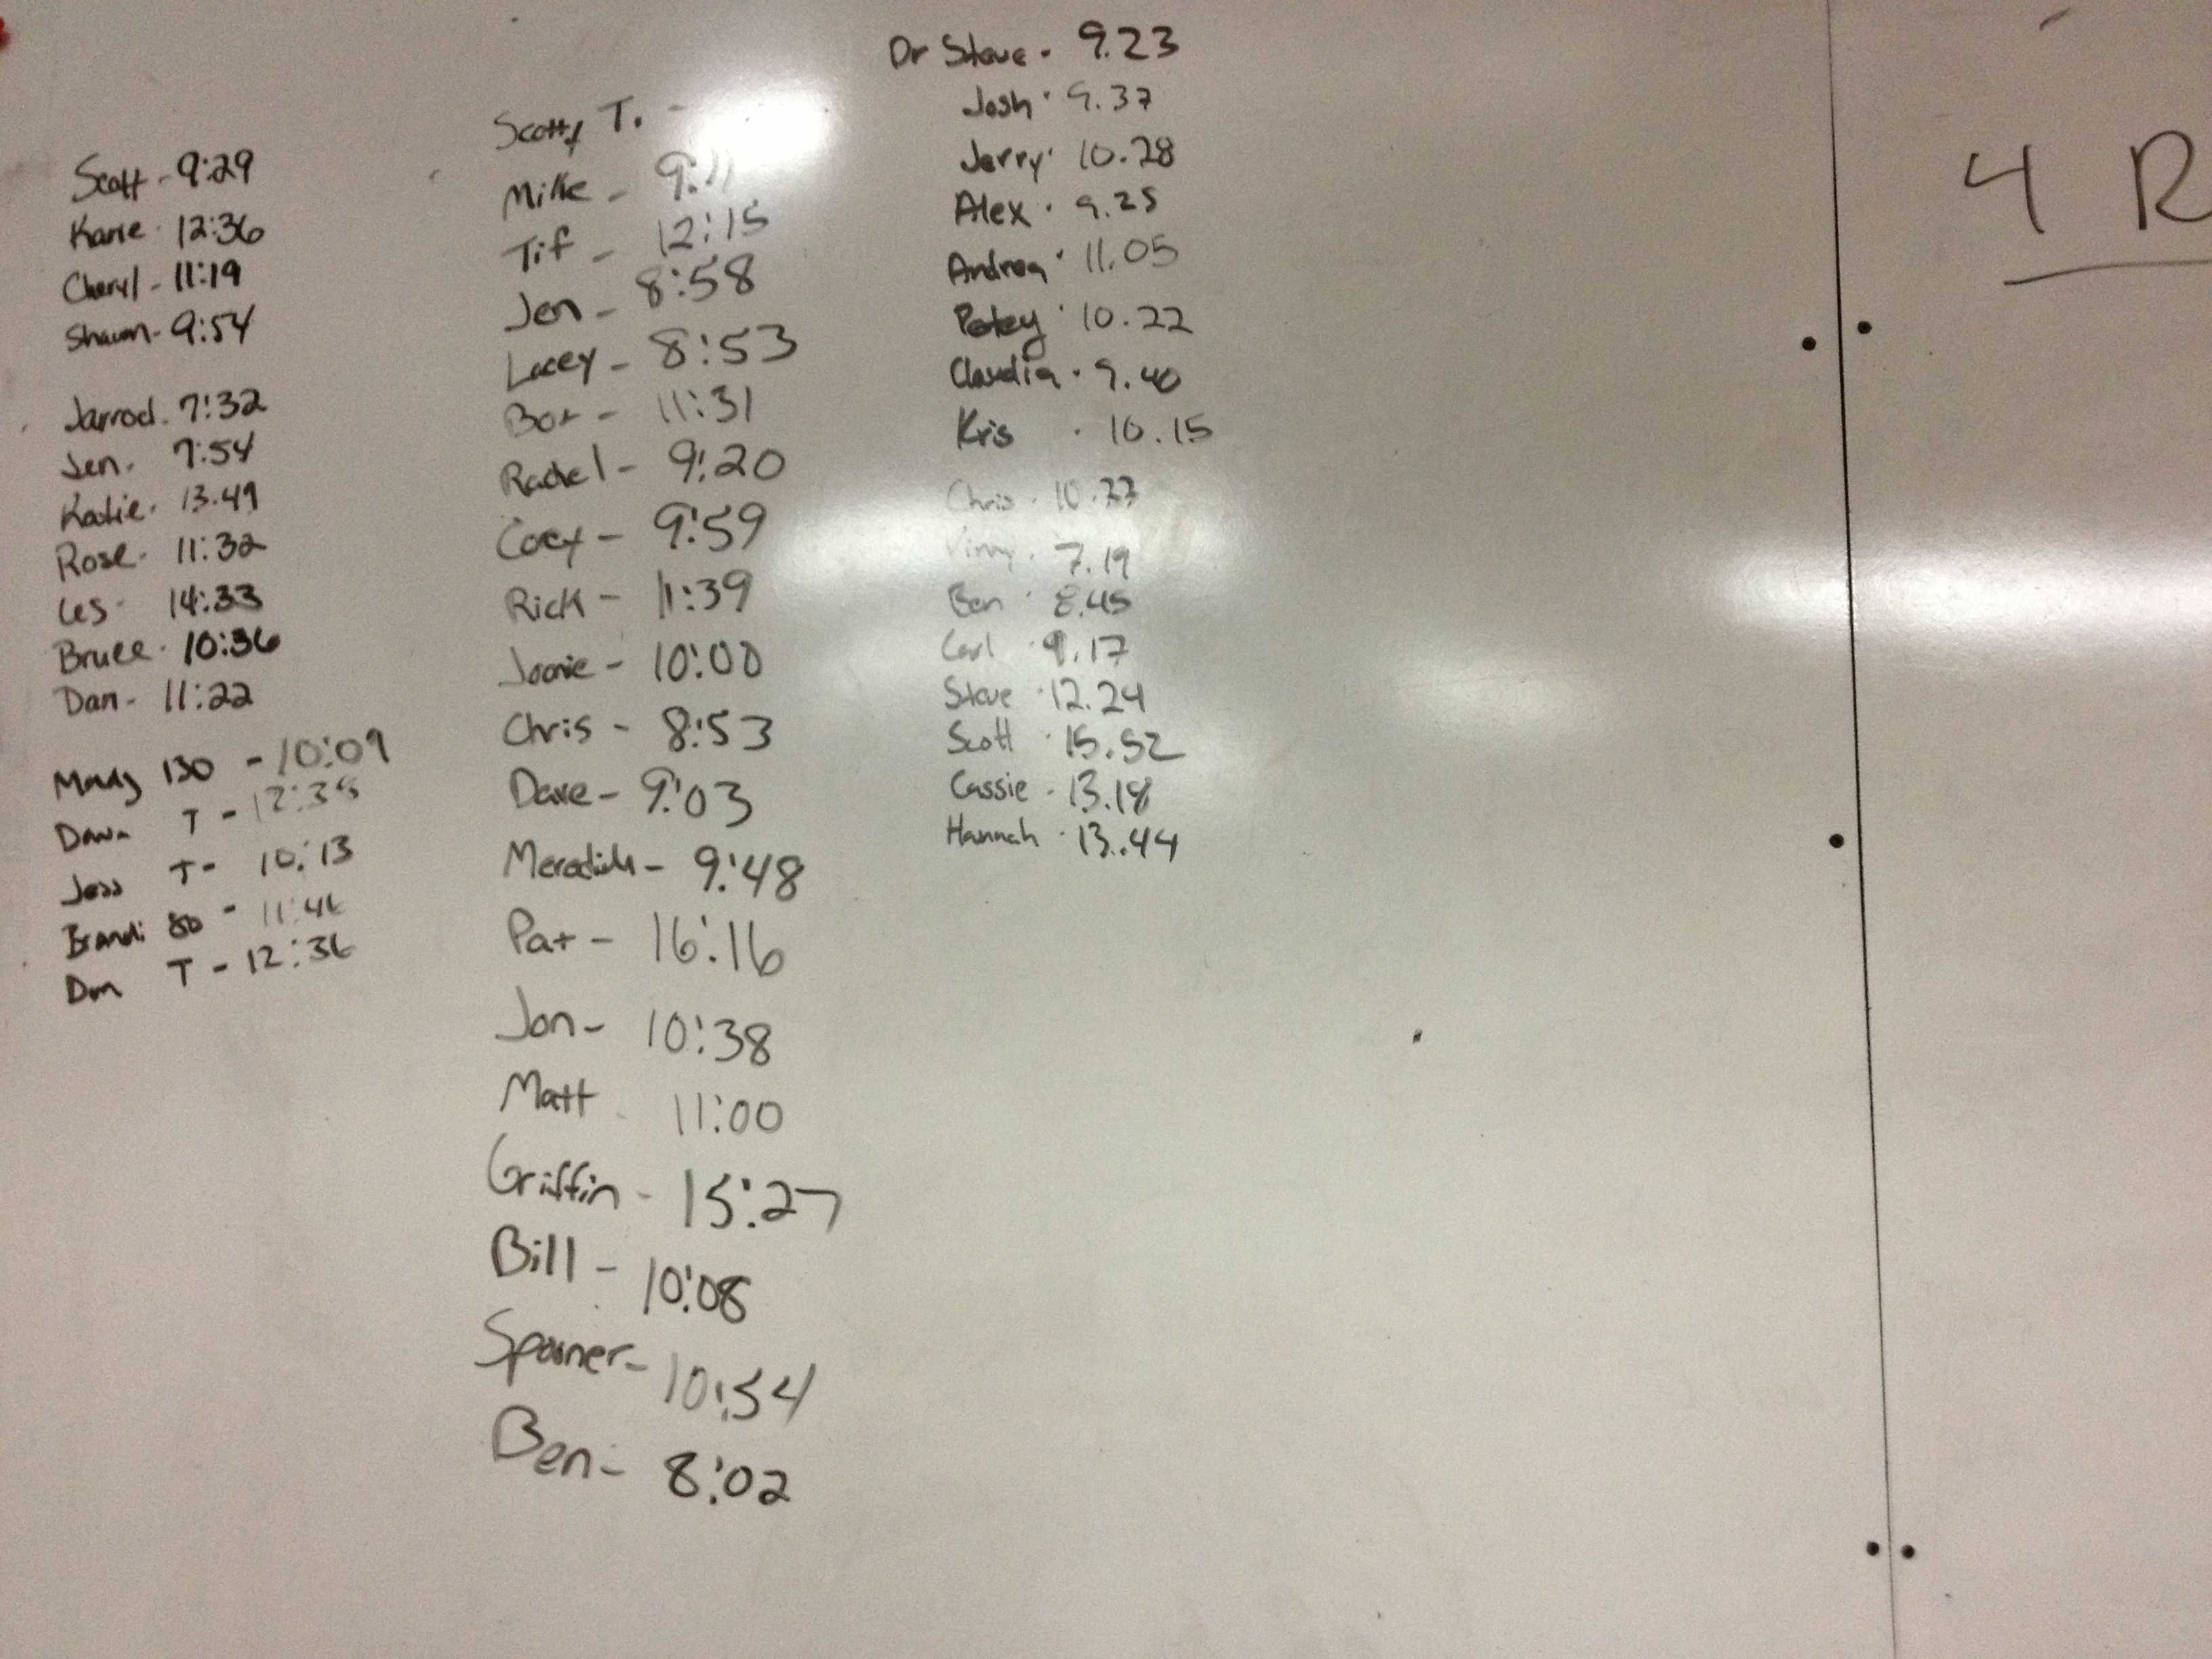 Scott - 9:29
Karie - 12:36
Cheryl - 11:19
Shawn - 9:54
Jarrod - 7:32
Jen - 7:54
Katie - 13.49
Rose - 11:32
Les - 14:33
Bruce - 10:36
Dan - 11:22
130 - 10:09
T - 12:38
Jess T - 10:13
Brandi 80 - 11:46
T - 12:36
Scotty T. -
Mike - 9:11
Tif - 12:15
Jen - 8:58
Lacey - 8:53
11:31
Rachel - 9:20
Coey - 9:59
Rick - 11:39
Joanie - 10:00
Chris - 8:53
Dave - 9:03
Meredith - 9:48
Pat - 16:16
Jon - 10:38
Matt 11:00
Griffin - 15:27
Bill - 10:08
10:54
Ben - 8:02
Dr Steve - 9.23
Josh - 9.37
Jerry - 10.28
Alex - 9.25
Andrea - 11.05
Petey - 10.22
Claudia - 9.40
Kris - 10.15
Chris - 10.33
Vinny - 7.19
Ben - 8.45
Carl - 9.17
Steve - 12.24
Scott - 15.52
Cassie - 13.18
Hannah - 13.44
4 R